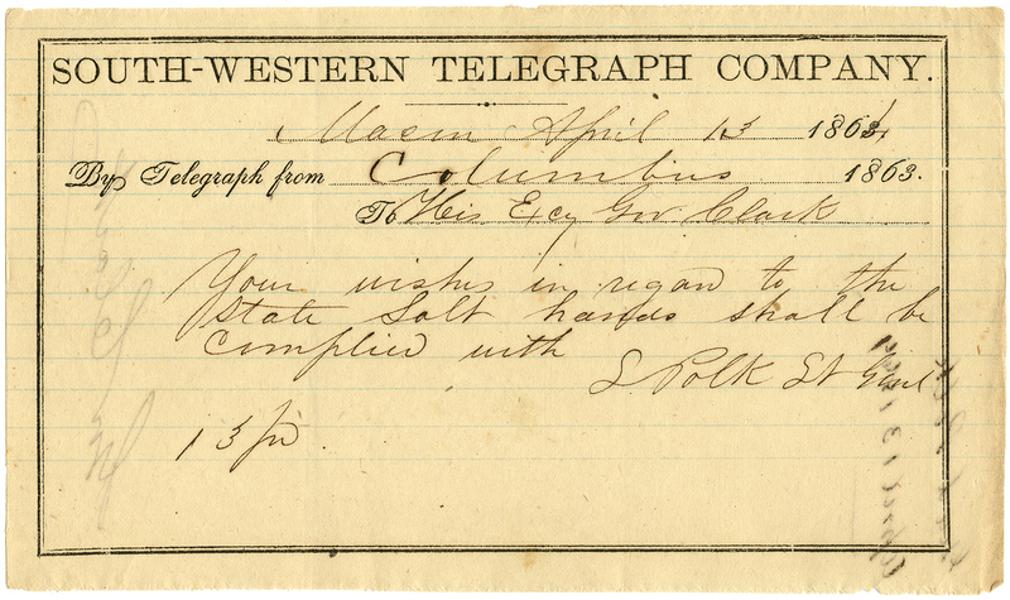 SOUTH-WESTERN TELEGRAPH COMPANY.
Macon April 13 1864
By Telegraph from Columbus 1863.
To His Excy Gov. Clark
Your wishes in regard to the
State Salt hands shall be
complied with
L. Polk Lt Genl
13 pd.